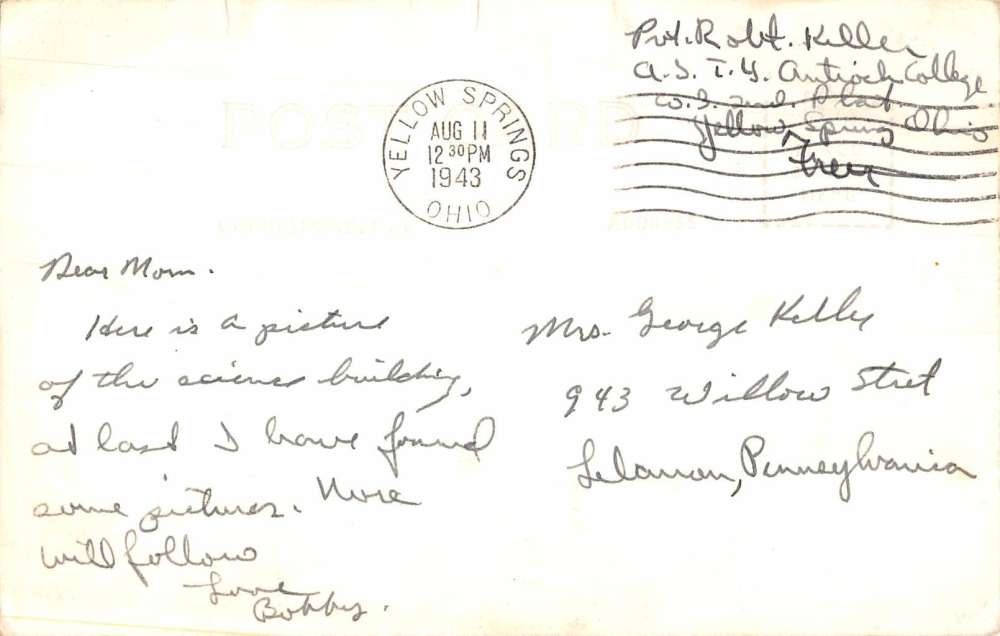 Pvt. Robt. Keller
A.S.T.U. Antioch College
Yellow Springs Ohio
Free
YELLOW SPRINGS
AUG 11
12 30 PM
1943
OHIO
POST CARD
Dear Mom.
Here is a picture
of the science building,
at last I have found
some pictures. More
will follow
Love
Bobby.
Mrs. George Keller
943 Willow Street
Lebanon, Pennsylvania